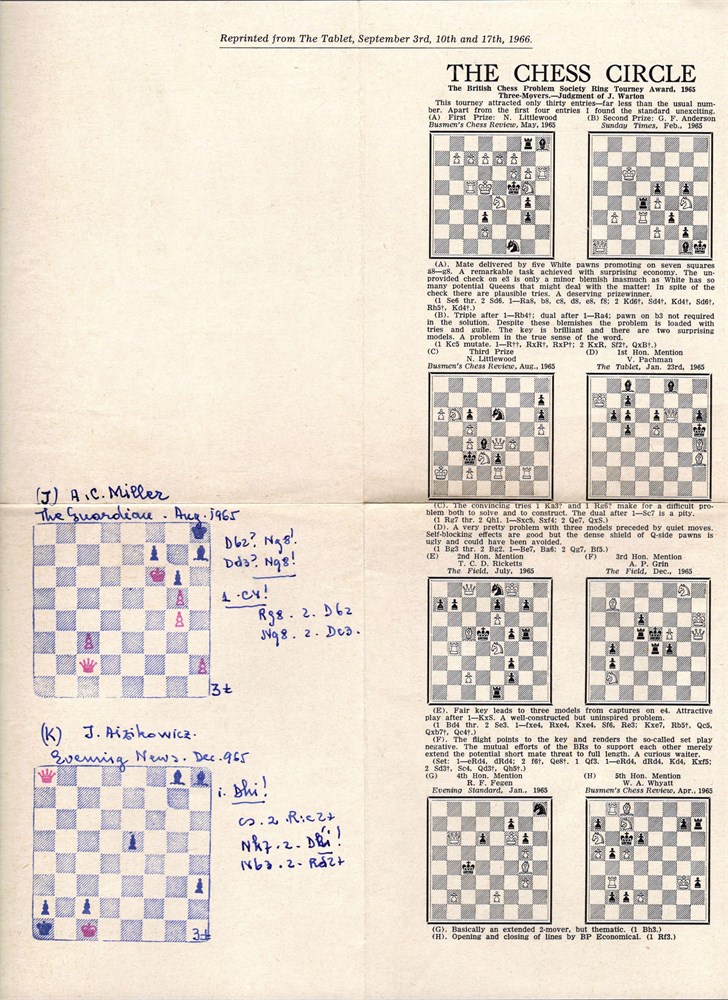 Reprinted from The Tablet, September 3rd, 10th and 17th, 1966.
THE CHESS CIRCLE
The British Chess Problem Society Ring Tourney Award, 1965
Three-Movers.—Judgment of J. Warton
This tourney attracted only thirty entries—far less than the usual num-
ber. Apart from the first four entries I found the standard unexciting.
(A) First Prize: N. Littlewood
Busmen's Chess Review, May, 1965
(B) Second Prize: G. F. Anderson
Sunday Times, Feb., 1965
(A). Mate delivered by five White pawns promoting on seven squares
a8—g8. A remarkable task achieved with surprising economy. The un-
provided check on e3 is only a minor blemish inasmuch as White has so
many potential Queens that might deal with the matter! In spite of the
check there are plausible tries. A deserving prizewinner.
(1 Se6 thr. 2 Sd6. 1—Ra8, b8, c8, d8, e8, f8; 2 Kd6†, Sd4†, Kd4†, Sd6†,
Rh5†, Kd4†.)
(B). Triple after 1—Rb4†; dual after 1—Ra4; pawn on b3 not required
in the solution. Despite these blemishes the problem is loaded with
tries and guile. The key is brilliant and there are two surprising
models. A problem in the true sense of the word.
(1 Kc5 mutate. 1—R††, RxR†, RxP†; 2 KxR, Sf2†, QxB†.)
(C) Third Prize
N. Littlewood
Busmen's Chess Review, Aug., 1965
(D) 1st Hon. Mention
V. Pachman
The Tablet, Jan. 23rd, 1965
(C). The convincing tries 1 Ka3? and 1 Rg6? make for a difficult pro-
blem both to solve and to construct. The dual after 1—Sc7 is a pity.
(1 Rg7 thr. 2 Qh1. 1—Sxc5, Sxf4; 2 Qe7, QxS.)
(D). A very pretty problem with three models preceded by quiet moves.
Self-blocking effects are good but the dense shield of Q-side pawns is
ugly and could have been avoided.
(1 Bg3 thr. 2 Bg2. 1—Be7, Ba6; 2 Qg7, Bf5.)
(E) 2nd Hon. Mention
T. C. D. Ricketts
The Field, July, 1965
(F) 3rd Hon. Mention
A. P. Grin
The Field, Dec., 1965
(E). Fair key leads to three models from captures on e4. Attractive
play after 1—KxS. A well-constructed but uninspired problem.
(1 Bd4 thr. 2 Se3. 1—fxe4, Rxe4, Kxe4, Sf6, Re3; Kxe7, Rb5†, Qc5,
Qxb7†, Qc4†.)
(F). The flight points to the key and renders the so-called set play
negative. The mutual efforts of the BRs to support each other merely
extend the potential short mate threat to full length. A curious waiter.
(Set: 1—eRd4, dRd4; 2 f6†, Qe8†. 1 Qf3. 1—eRd4, dRd4, Kd4, Kxf5;
2 Sd3†, Sc4, Qd3†, Qh5†.)
(G) 4th Hon. Mention
R. F. Fegen
Evening Standard, Jan., 1965
(H) 5th Hon. Mention
W. A. Whyatt
Busmen's Chess Review, Apr., 1965
(G). Basically an extended 2-mover, but thematic. (1 Bh3.)
(H). Opening and closing of lines by BP Economical. (1 Rf3.)
(J) A.C. Miller
The Guardian. Aug. 1965
Db2? Ng8!
Dd3? Ng8!
1. c4!
Rg8. 2. Db2
Ng8. 2. Dc3.
3‡
(K) J. Aizikowicz.
Evening News. Dec. 965
1. Dh1!
Nh7. 2. Dh1!
Nb3. 2. Rd2‡
3‡